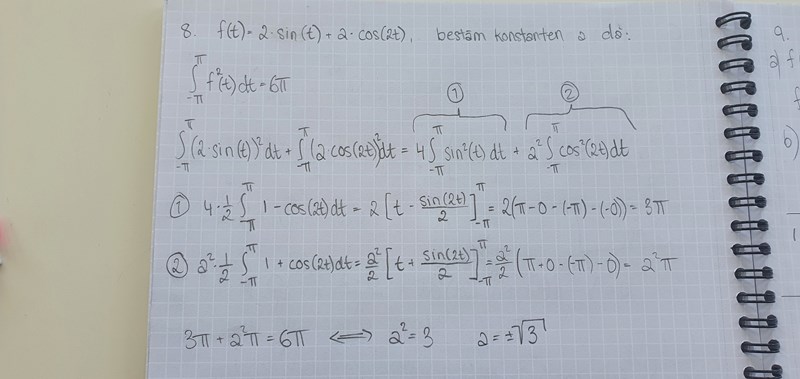 8. f(t) = 2·sin(t) + a·cos(2t), bestäm konstanten a då:
∫_{-π}^{π} f²(t)dt = 6π
① ②
∫_{-π}^{π} (2·sin(t))² dt + ∫_{-π}^{π} (a·cos(2t))² dt = 4 ∫_{-π}^{π} sin²(t) dt + a² ∫_{-π}^{π} cos²(2t) dt
① 4·1/2 ∫_{-π}^{π} 1 - cos(2t) dt = 2 [t - sin(2t)/2]_{-π}^{π} = 2(π - 0 - (-π) - (-0)) = 3π
② a²·1/2 ∫_{-π}^{π} 1 + cos(2t) dt = a²/2 [t + sin(2t)/2]_{-π}^{π} = a²/2 (π + 0 - (-π) - 0) = a²π
3π + a²π = 6π ⟺ a² = 3 a = ±√3
9.
a) f
f
b)